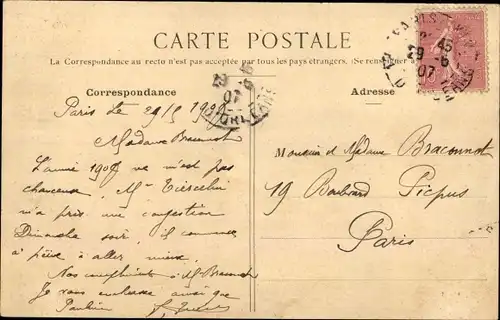 CARTE POSTALE
La Correspondance au recto n'est pas acceptée par tous les pays étrangers. (Se renseigner
Correspondance
Adresse
Paris Le
Madame Braconnot
L'année 1907 ne m'est pas
chanceuse, Mr Tiercelin
m'a pris une congestion
Dimanche soir, il commence
à peine à aller mieux.
Nos compliments à Mr Braconnot
Je vous embrasse ainsi que
Monsieur et Madame Braconnot
19 Boulevard Picpus
Paris
PARIS
45
29 -6
07
29
07